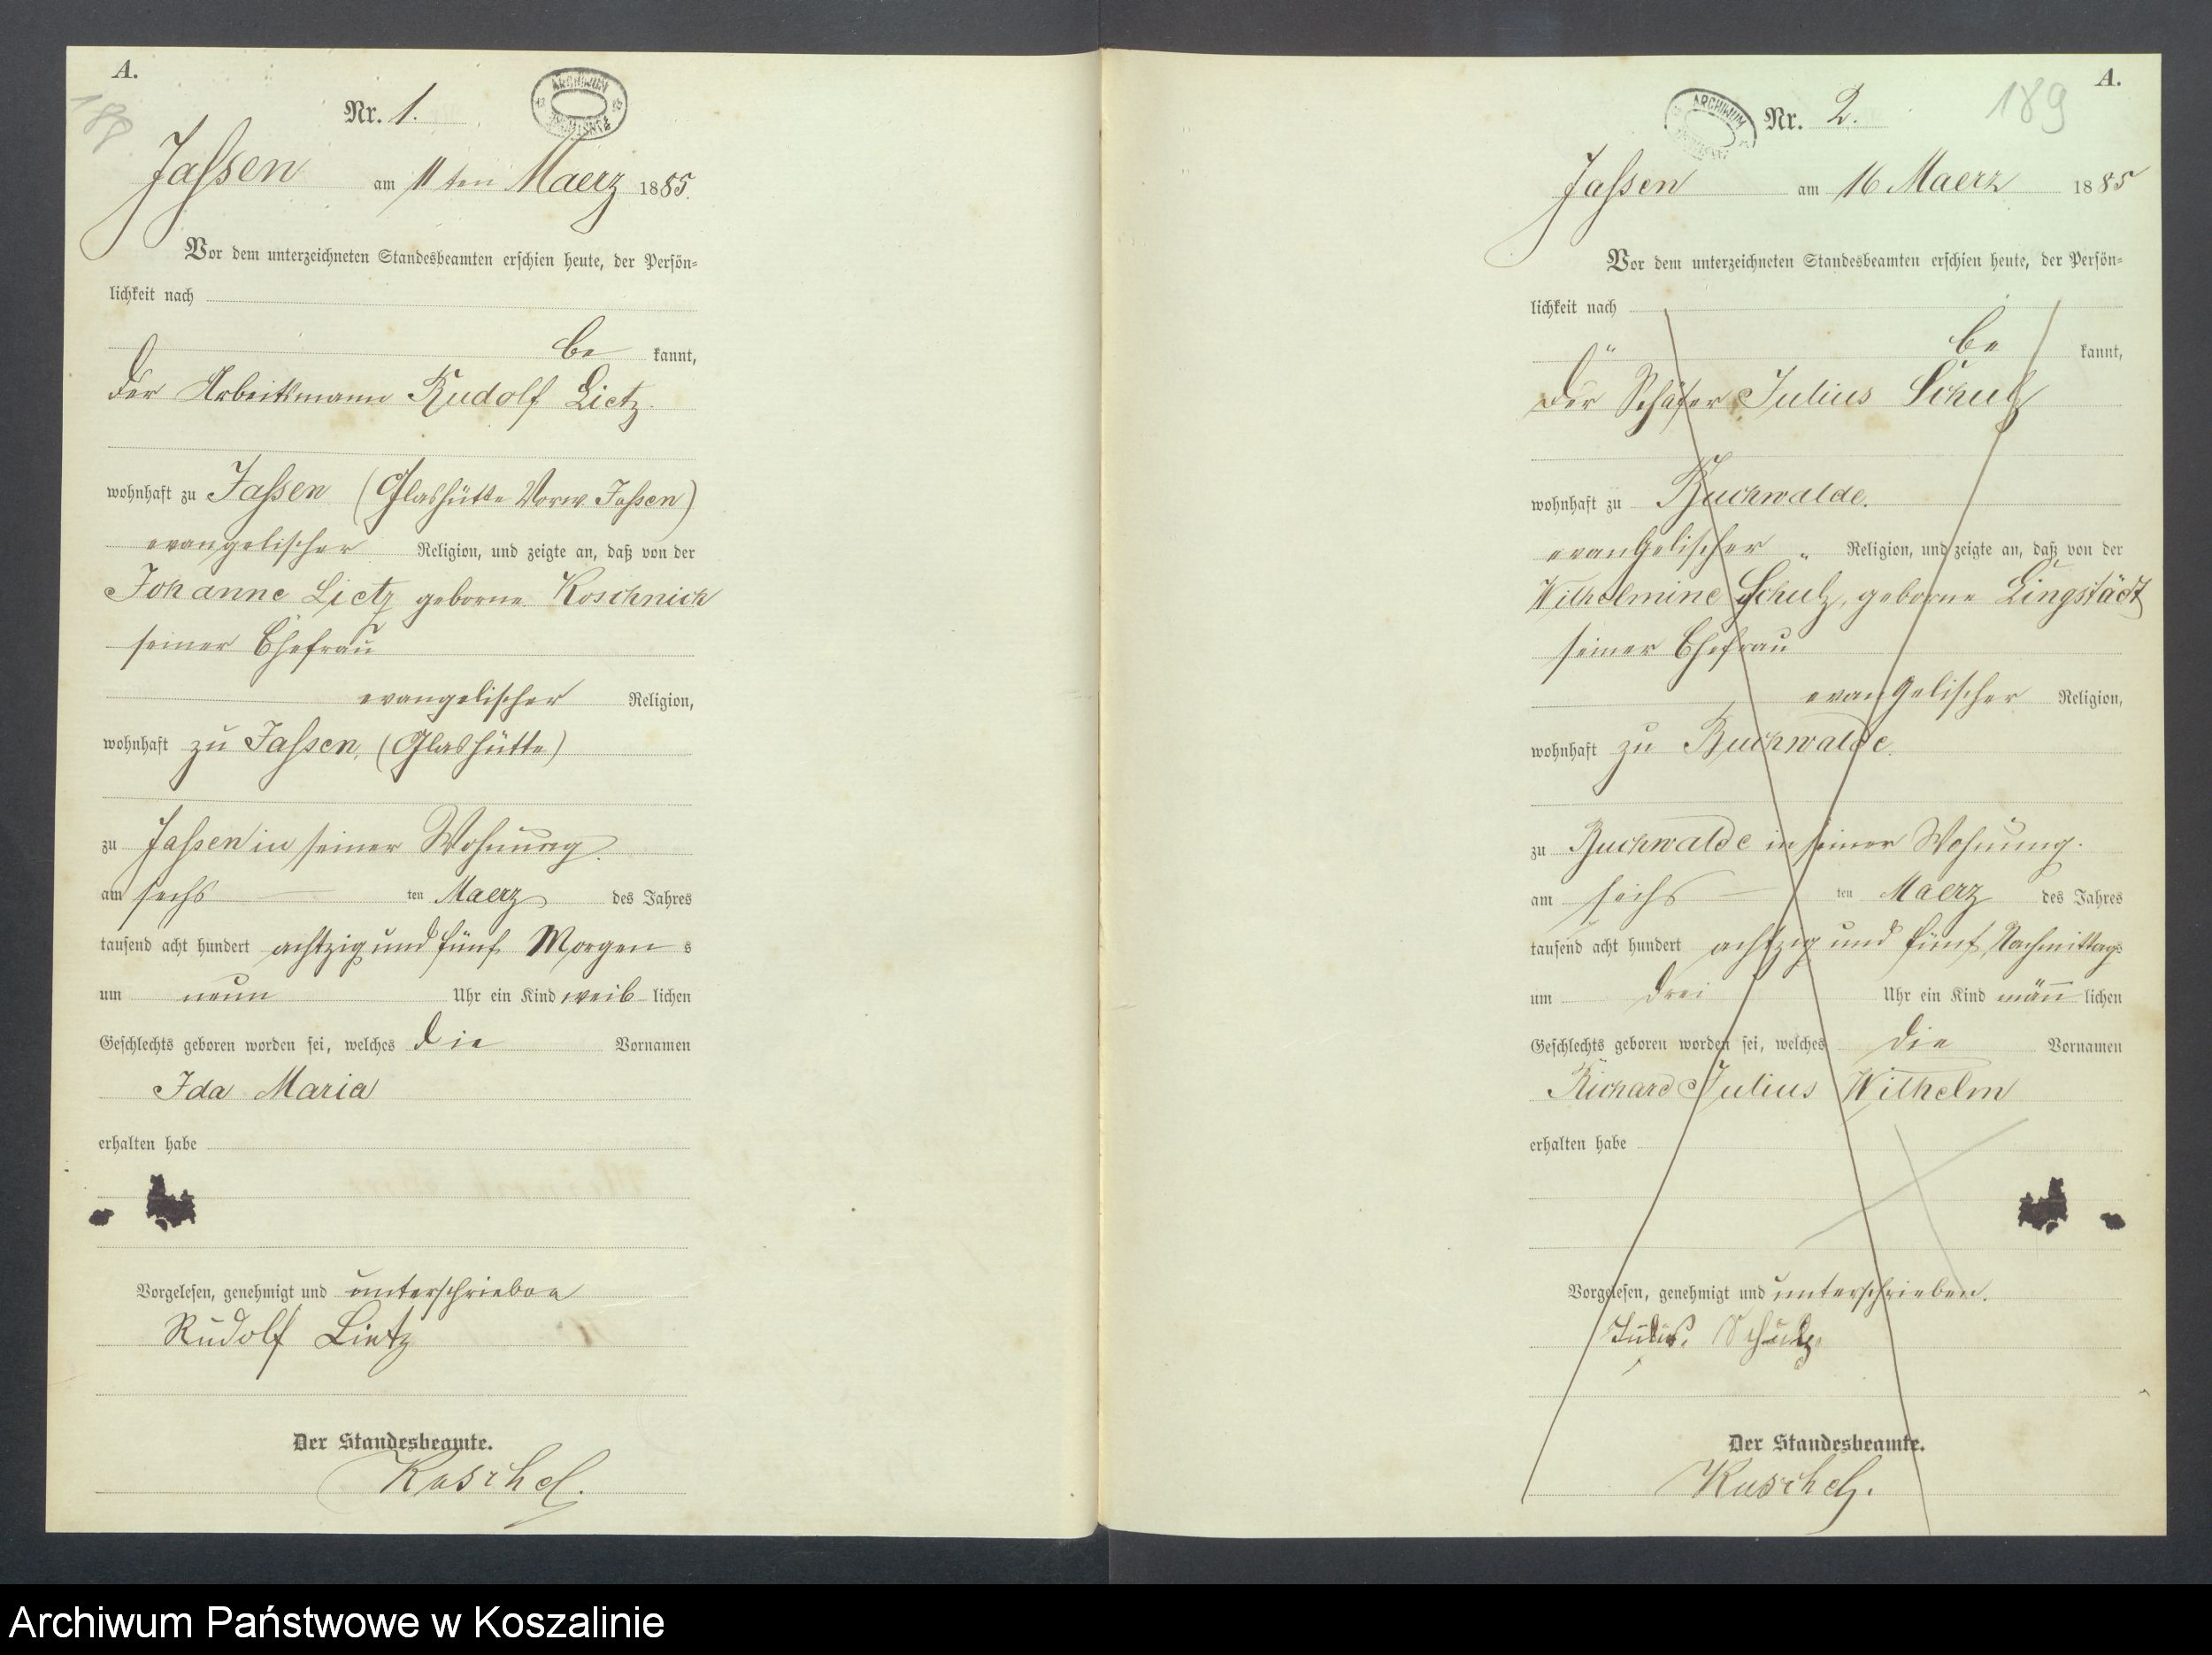 A.
188
Nr. 1.
ARCHIWUM
Jassen am 11ten Maerz 1885.
Vor dem unterzeichneten Standesbeamten erschien heute, der Persön=
lichkeit nach
be kannt,
der Arbeitsmann Rudolf Lietz.
wohnhaft zu Jassen (Glashütte Vorw. Jassen)
evangelischer Religion, und zeigte an, daß von der
Johanne Lietz geborne Koschnick
seiner Ehefrau
evangelischer Religion,
wohnhaft zu Jassen, (Glashütte)
zu Jassen in seiner Wohnung.
am sechs ten Maerz des Jahres
tausend acht hundert achtzig und fünf Morgen s
um neun Uhr ein Kind weib lichen
Geschlechts geboren worden sei, welches die Vornamen
Ida Maria
erhalten habe
Vorgelesen, genehmigt und unterschrieben
Rudolf Lietz
Der Standesbeamte.
Kuschel.
A.
189
Nr. 2.
ARCHIWUM
Jassen am 16 Maerz 1885
Vor dem unterzeichneten Standesbeamten erschien heute, der Persön=
lichkeit nach
be kannt,
Der Schäfer Julius Schulz
wohnhaft zu Buchwalde.
evangelischer Religion, und zeigte an, daß von der
Wilhelmine Schulz, geborne Lingstädt
seiner Ehefrau
evangelischer Religion,
wohnhaft zu Buchwalde.
zu Buchwalde in seiner Wohnung.
am sechs ten Maerz des Jahres
tausend acht hundert achtzig und fünf, Nachmittags
um drei Uhr ein Kind männ lichen
Geschlechts geboren worden sei, welches die Vornamen
Richard Julius Wilhelm
erhalten habe
Vorgelesen, genehmigt und unterschrieben.
Julius Schulz
Der Standesbeamte.
Kuschel.
Archiwum Państwowe w Koszalinie